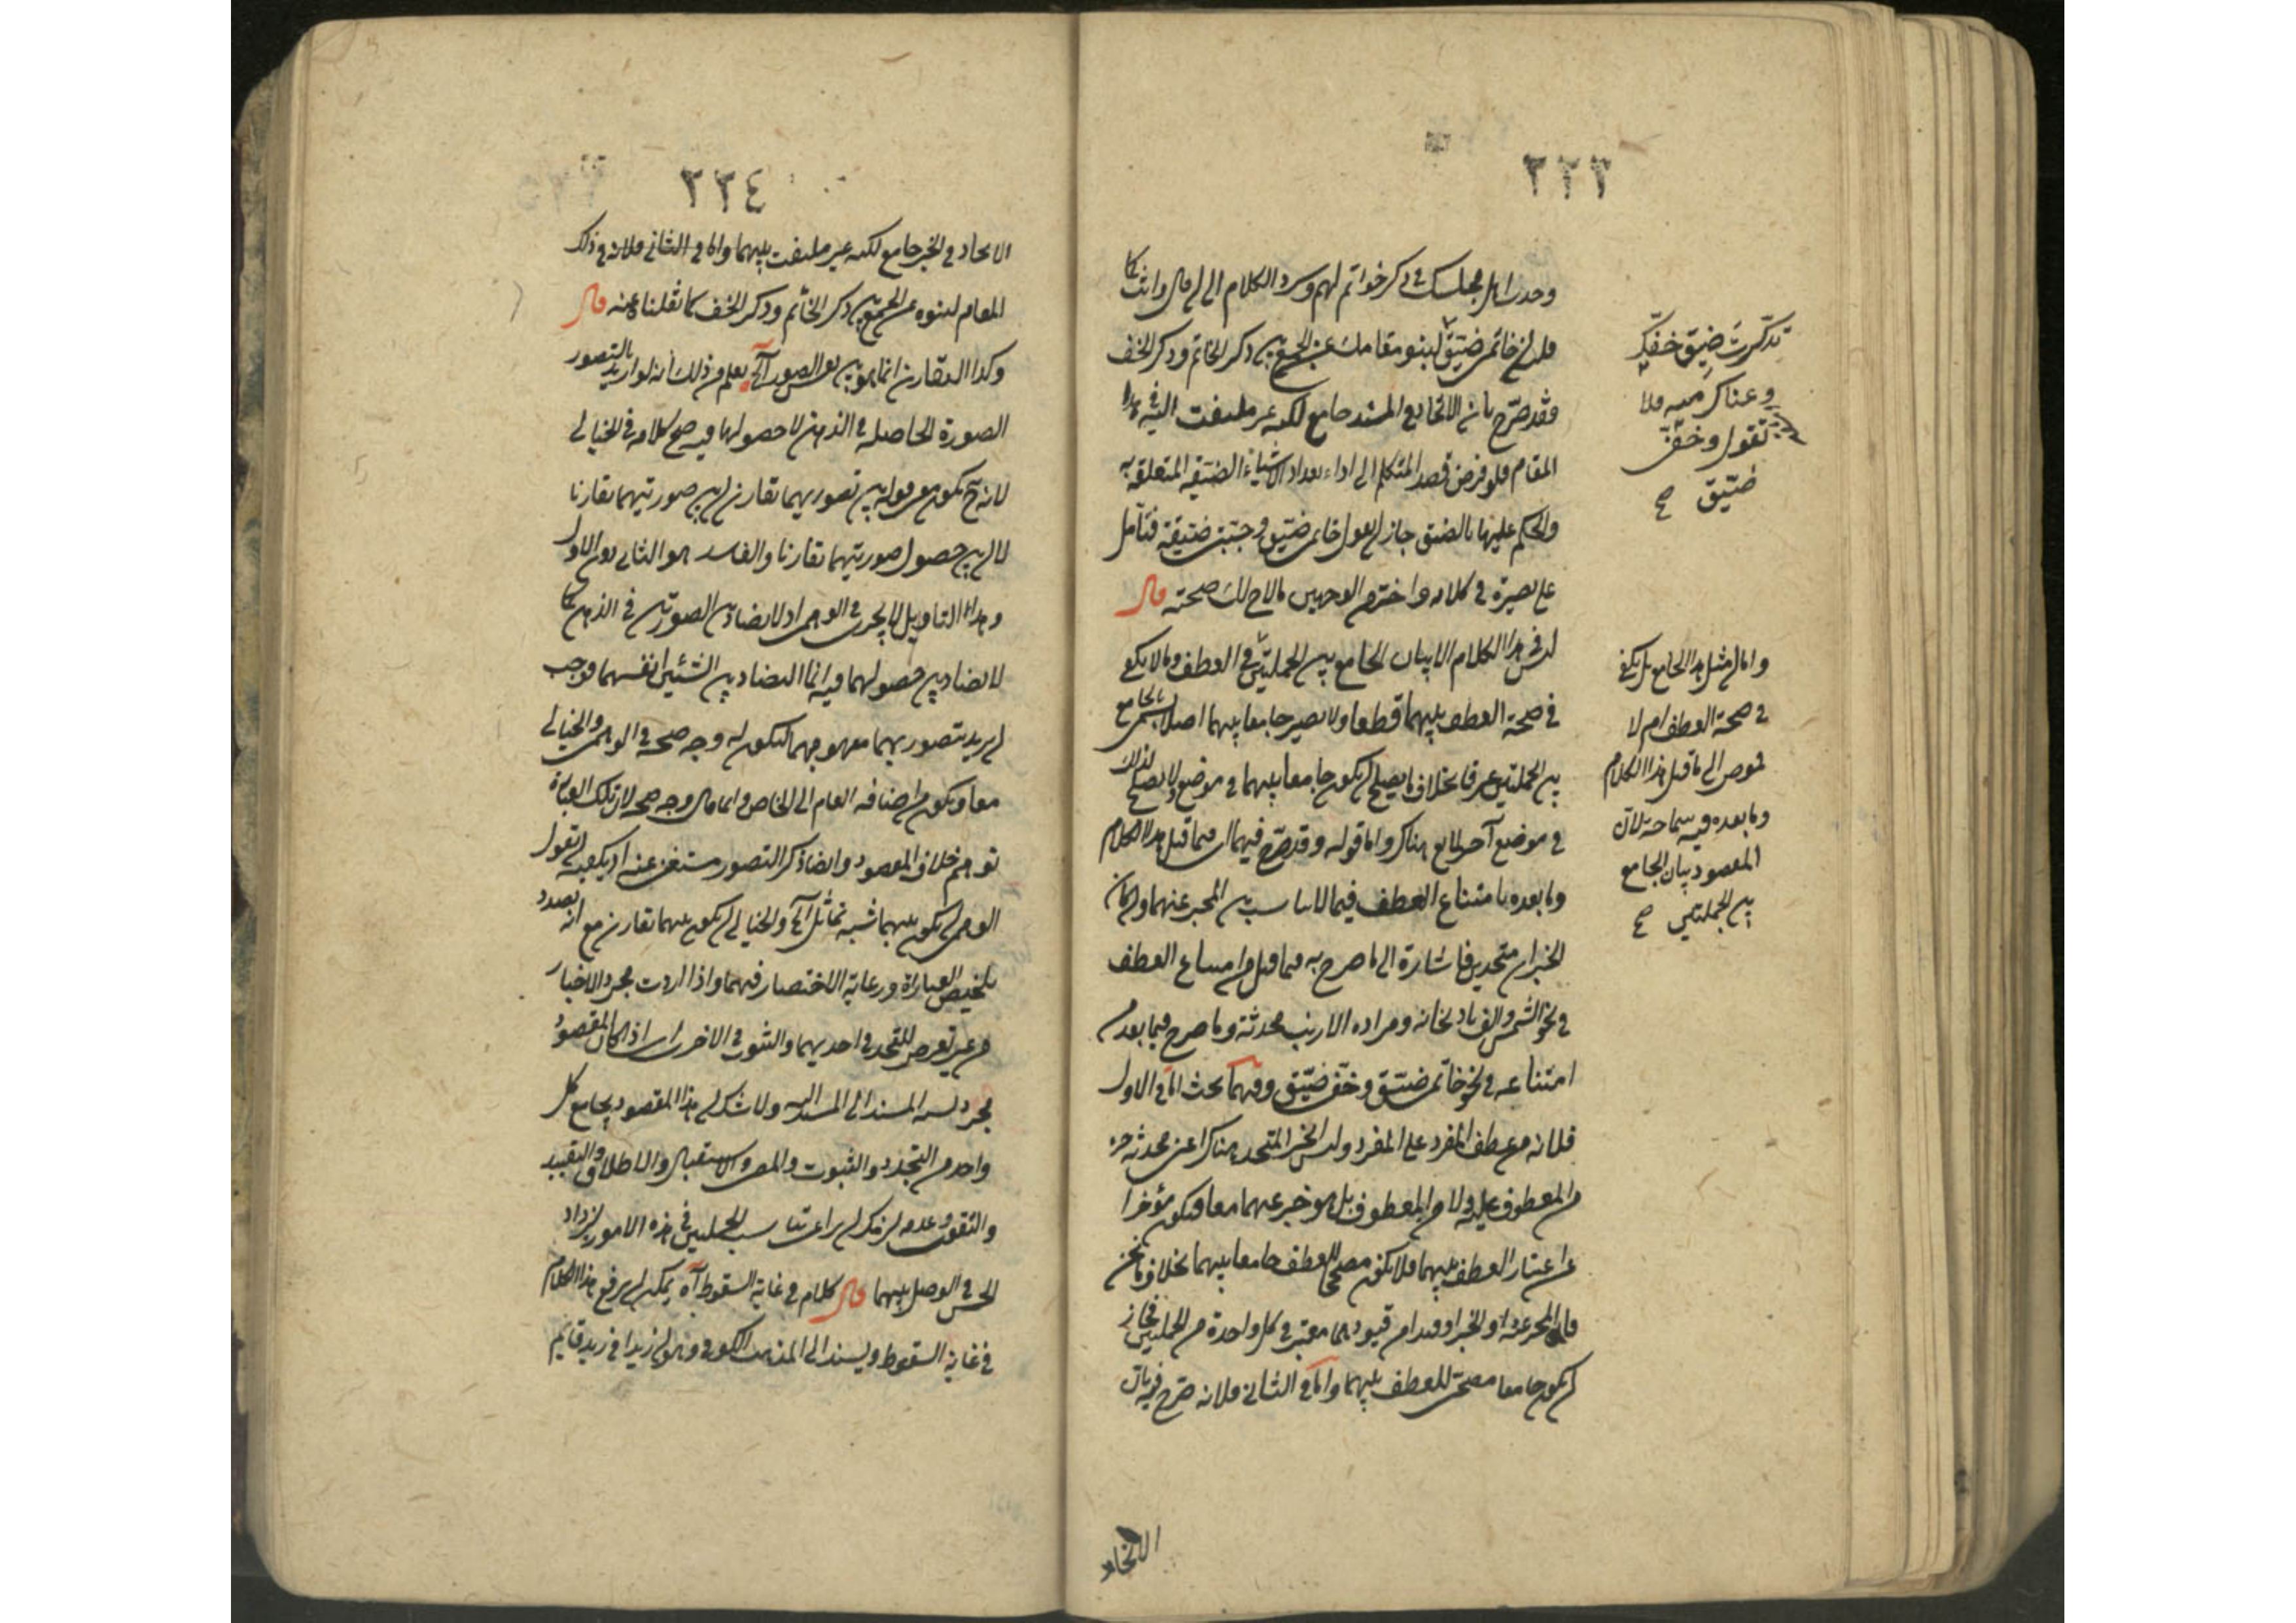 ٢٢٣
وجدت اهل مجلسك في ذكر خواتم لهم وسرد الكلام الى ان قال وانت كما
قلت ان خاتمي ضيق لينبو مقامك عن الجمع بين ذكر الخاتم وذكر الخف
فقد صرح بان الاتحاد في المسند جامع لكنه غير ملتفت اليه في هذا
المقام فلو فرض قصد المتكلم الى اداء تعداد الاشياء الضيقة المتعلقة به
والحكم عليها بالضيق جاز ان يقول خاتمي ضيق وجبتي ضيقة فتأمل
على بصيرة في كلامه واختر من الوجهين ما لاح لك صحته قال
ليس في هذا الكلام الا بيان الجامع بين الجملتين في العطف وما لا يكفي
في صحة العطف بينهما قطعا ولا يصير جامعا بينهما اصلا لا يسمى بالجامع
بين الجملتين عرفا بخلاف ما يصلح ان يكون جامعا بينهما في موضع ولا يصلح لذلك
في موضع آخر لمانع هناك واما قوله وقد صرح فيهما اى فيما قبل هذا الكلام
وما بعده بامتناع العطف فيما لا تناسب بين المخبر عنهما وان كان
الخبران متحدين فاشارة الى ما صرح به فيما قبل من امتناع العطف
في نحو الشمس والف باذنجانة ومرارة الارنب محدثة وما صرح فيما بعد من
امتناعه في نحو خاتمي ضيق وخفي ضيق وفيهما بحث اما في الاول
فلانه من عطف المفرد على المفرد وليس الخبر المتحد هناك اعني محدثة جزء
من المعطوف عليه ولا من المعطوف بل هو خبر عنهما معا فيكون مؤخرا
عن اعتبار العطف بينهما فلا يكون مصححا للعطف جامعا بينهما بخلاف ما نحن
فيه فان المخبر عنه او الخبر او قيدا من قيودهما معتبر في كل واحدة من الجملتين فجاز
ان يكون جامعا مصححا للعطف بينهما واما في الثاني فلانه صرح فيه بان
الاتحاد
تذكرت ضيق خفك
وعناك منه فلا
تقول وخفي
ضيق صح
واما ان مثل هذا الجامع هل يكفي
في صحة العطف ام لا
فمفوض الى ما قبل هذا الكلام
وما بعده فيه سماحة لان
المقصود بيان الجامع
بين الجملتين صح
٢٢٤
الاتحاد في الخبر جامع لكنه غير ملتفت بينهما واما في الثاني فلانه في ذلك
المقام لنبوه عن الجمع بين ذكر الخاتم وذكر الخف كما نقلنا عنه قال
وكذا التقارن انما هو بين نفس الصور آه يعلم من ذلك انه لو اريد بالتصور
الصورة الحاصلة في الذهن لا حصولها فيه صح كلامه في الخيالي
لانه ح يكون معنى قوله بين تصوريهما تقارن ان بين صورتيهما تقارنا
لا ان بين حصول صورتيهما تقارنا والفاسد هو الثاني دون الاول
وهذا التأويل لا يجري في الوهمي اذ لا تضاد بين الصورتين في الذهن كما
لا تضاد بين حصولهما فيه انما التضاد بين الشيئين انفسهما فوجب
ان يريد بتصوريهما مفهوميهما ليكون له وجه صحة في الوهمي والخيالي
معا ويكون من اضافة العام الى الخاص وانما قال وجه صحة لان تلك العبارة
توهم خلاف المقصود وايضا ذكر التصور مستغنى عنه اذ يكفيه ان يقول
الوهمي ان يكون بينهما شبه تماثل آه والخيالي ان يكون بينهما تقارن مع انه بصدد
تلخيص العبارة ورعاية الاختصار فيهما واذا اردت مجرد الاخبار
من غير تعرض للتجدد في احديهما والثبوت في الاخرى اى اذا كان المقصود
مجرد نسبة المسند الى المسند اليه ولا شك ان هذا المقصود يجامع كل
واحد من التجدد والثبوت والمضي والاستقبال والاطلاق والتقييد
والتقوي وعدمه لزمك ان تراعي تناسب الجملتين في هذه الامور ليزداد
الحسن في الوصل بينهما قال كلام في غاية السقوط آه يمكن ان يرفع هذا الكلام
في غاية السقوط ويسند الى المذهب الكوفي وهو ان زيدا في زيد قائم